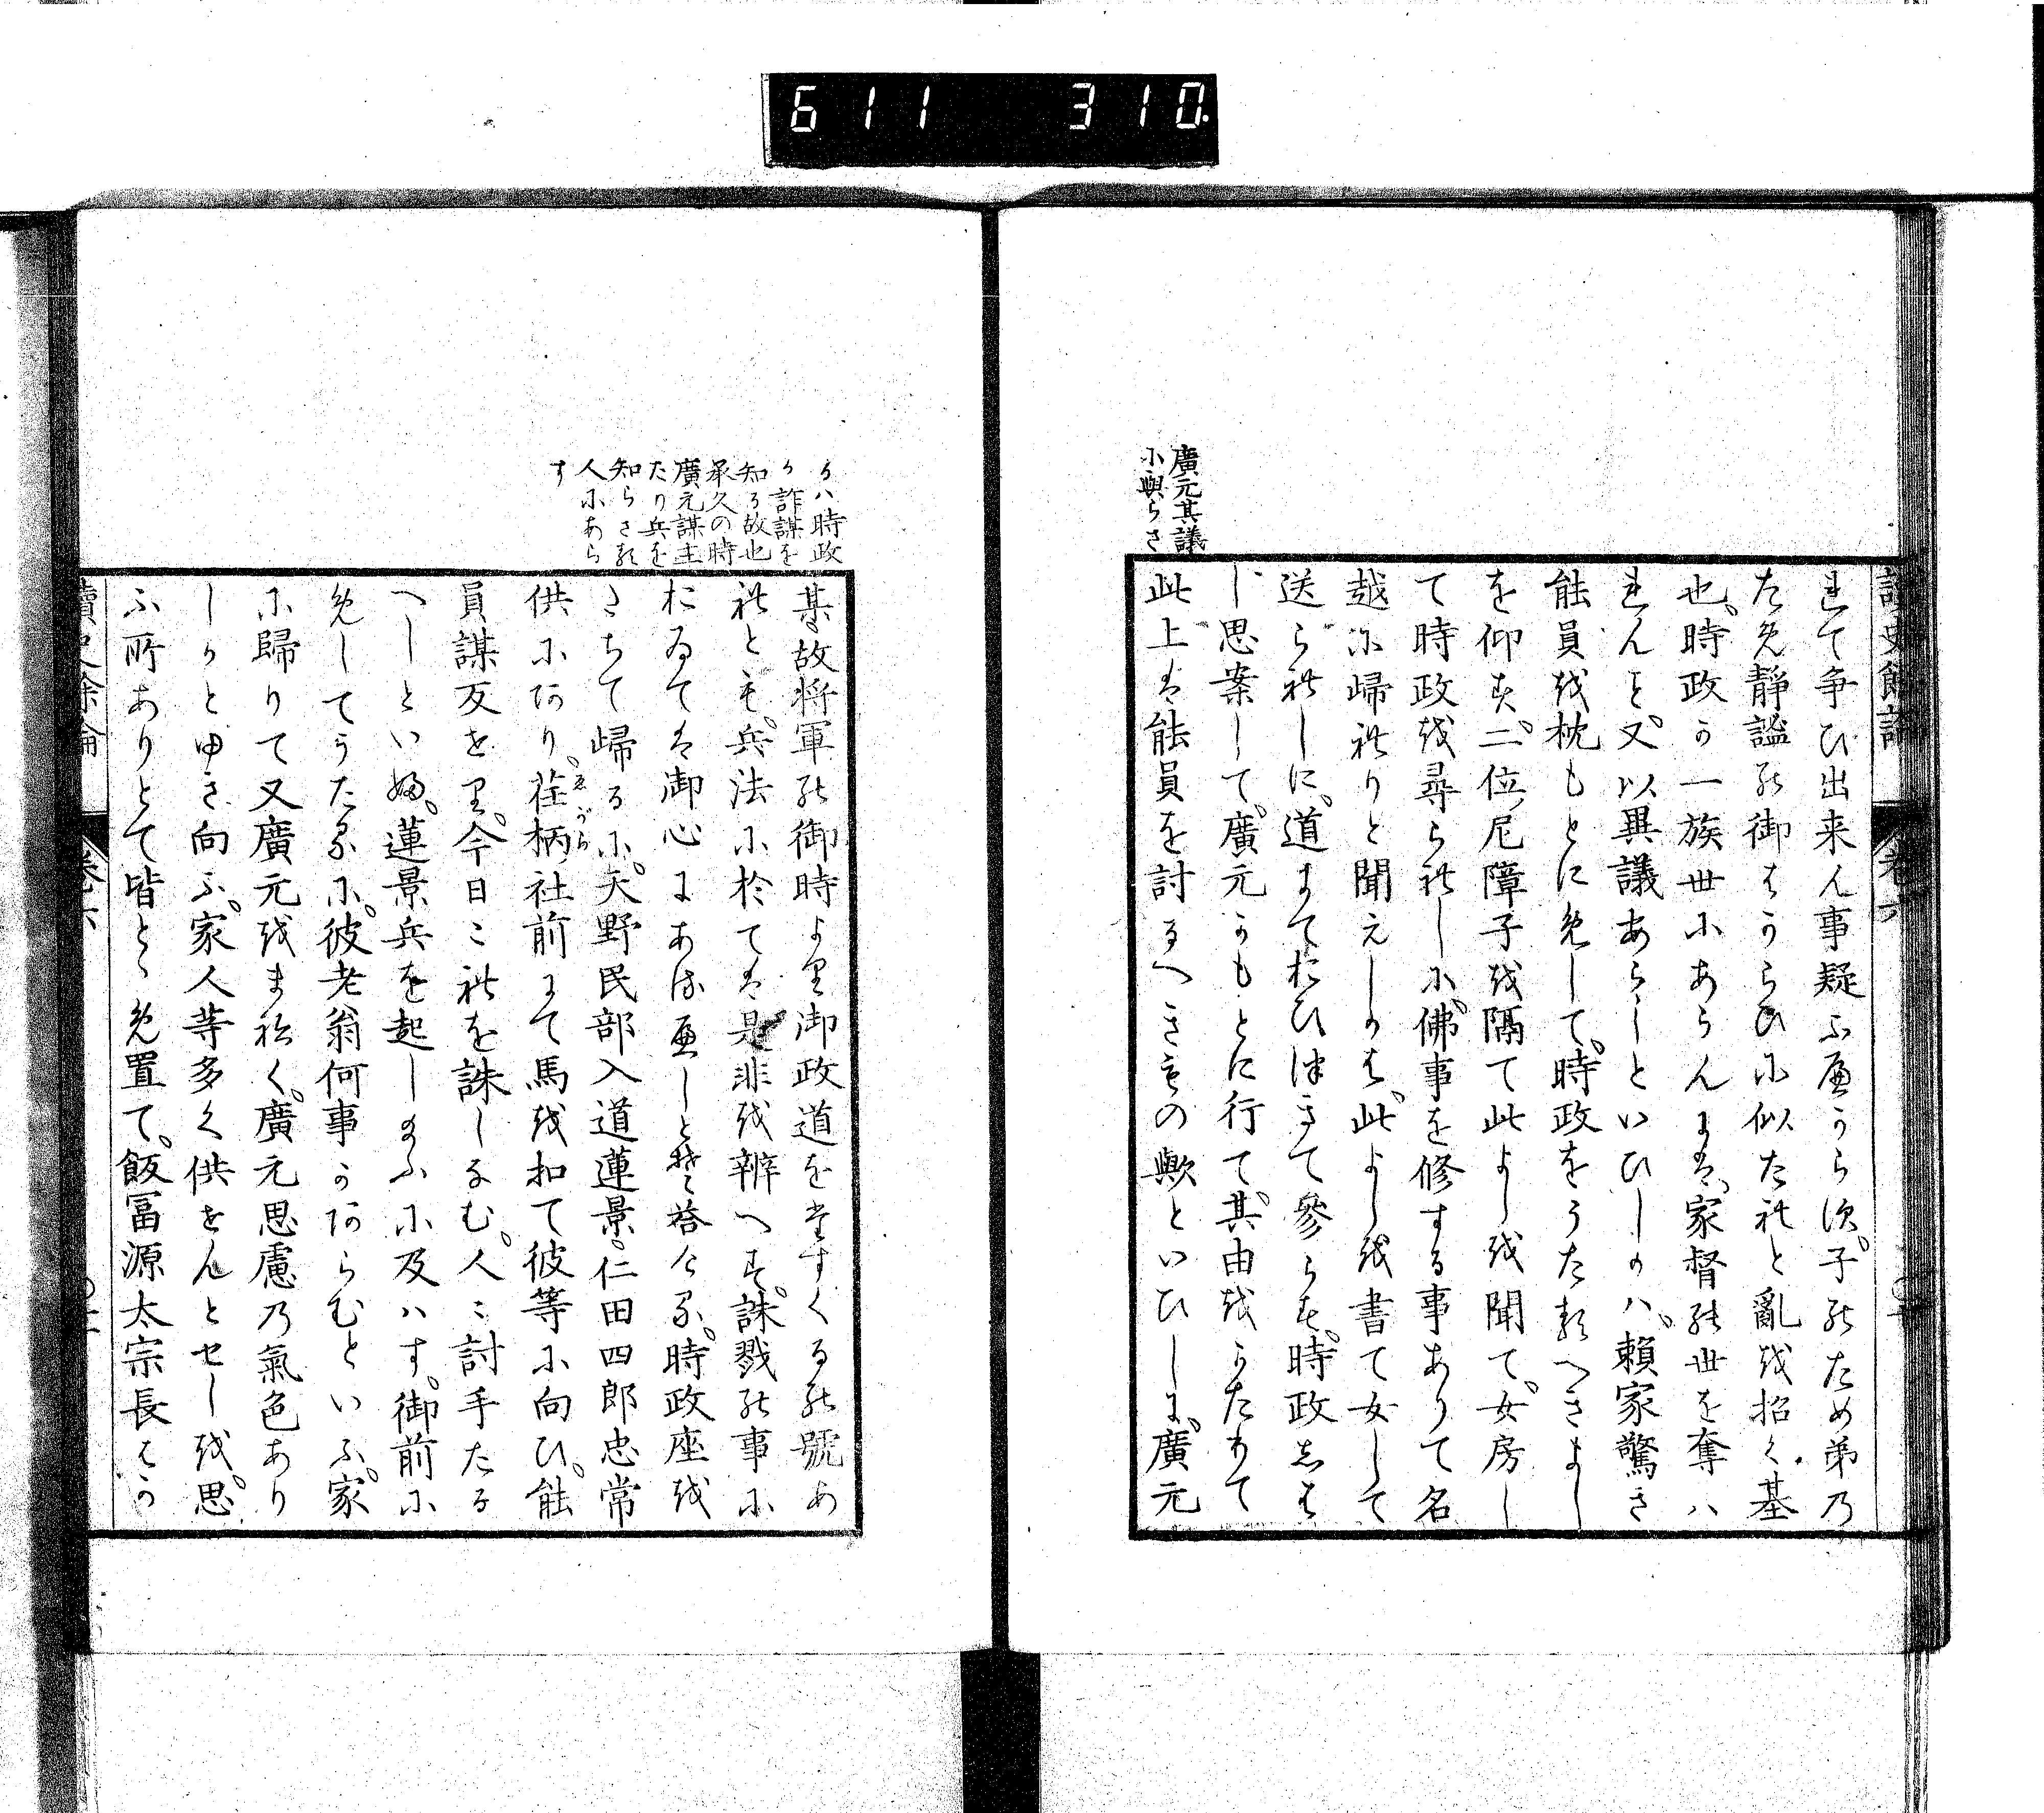 611 310
讀史餘論 巻六
廣元其議
に與らさ
れて争ひ出来ん事疑ふへからす。子のため弟の
ため靜謐の御はからひに似たれと亂を招く基
也。時政か一族世にあらんには、家督の世を奪ハ
れんと。又以異議あらしといひしかハ。頼家驚き
能員を枕もとにめして。時政をうたるへきよし
を仰す。二位尼障子を隔て此よしを聞て。女房し
て時政を尋られしに。佛事を修する事ありて名
越に歸れりと聞えしかは。此よしを書て女して
送られしに。道まておひ付きて參らす。時政しは
し思案して。廣元かもとに行て。其由をかたりて
此上は能員を討るへきもの歟といひしに。廣元
るハ時政
か詐謀を
知る故也
承久の時
廣元謀主
たり兵を
知らさる
人にあら
す
某。故将軍の御時より御政道をたすくるの號あ
れとも。兵法に於ては是非を辨へす。誅戮の事に
おゐては御心にあるへしとそ答ける。時政座を
たちて歸るに。天野民部入道蓮景。仁田四郎忠常
供にあり。荏柄社前にて馬を扣て彼等に向ひ。能
ゑがら
員謀反せり。今日これを誅しなむ。人々討手たる
へしといふ。蓮景兵を起し給ふに及ハす。御前に
めしてうたるに。彼老翁何事かあらむといふ。家
に歸りて又廣元をまねく。廣元思慮の氣色あり
しかとゆき向ふ。家人等多く供せんとせしを。思
ふ所ありとて皆とゝめ置て。飯冨源太宗長はか
讀史餘論 巻六